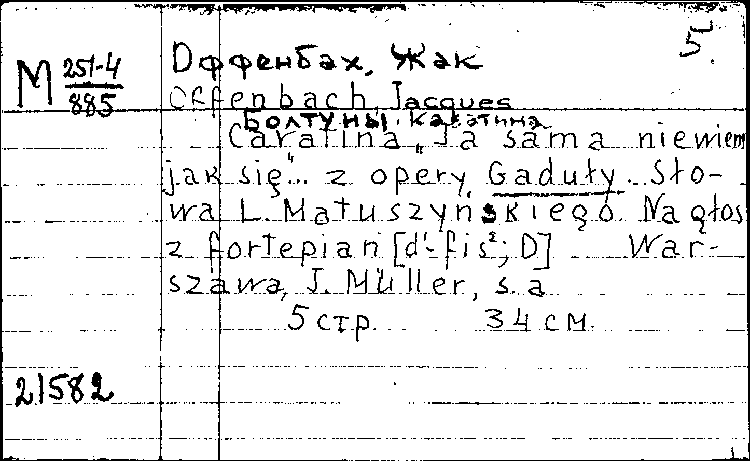 5.
M 251-4
885
Оффенбах, Жак
Offenbach Jacques
Болтуны. Каватина
Cavatina „Ja sama niewiem
jak się"... z opery Gaduły. Sło-
wa L. Matuszyńskiego. Na głos
z fortepian [d¹-fis²; D] War-
szawa, J. Müller, s.a
5 стр. 34 см.
21582